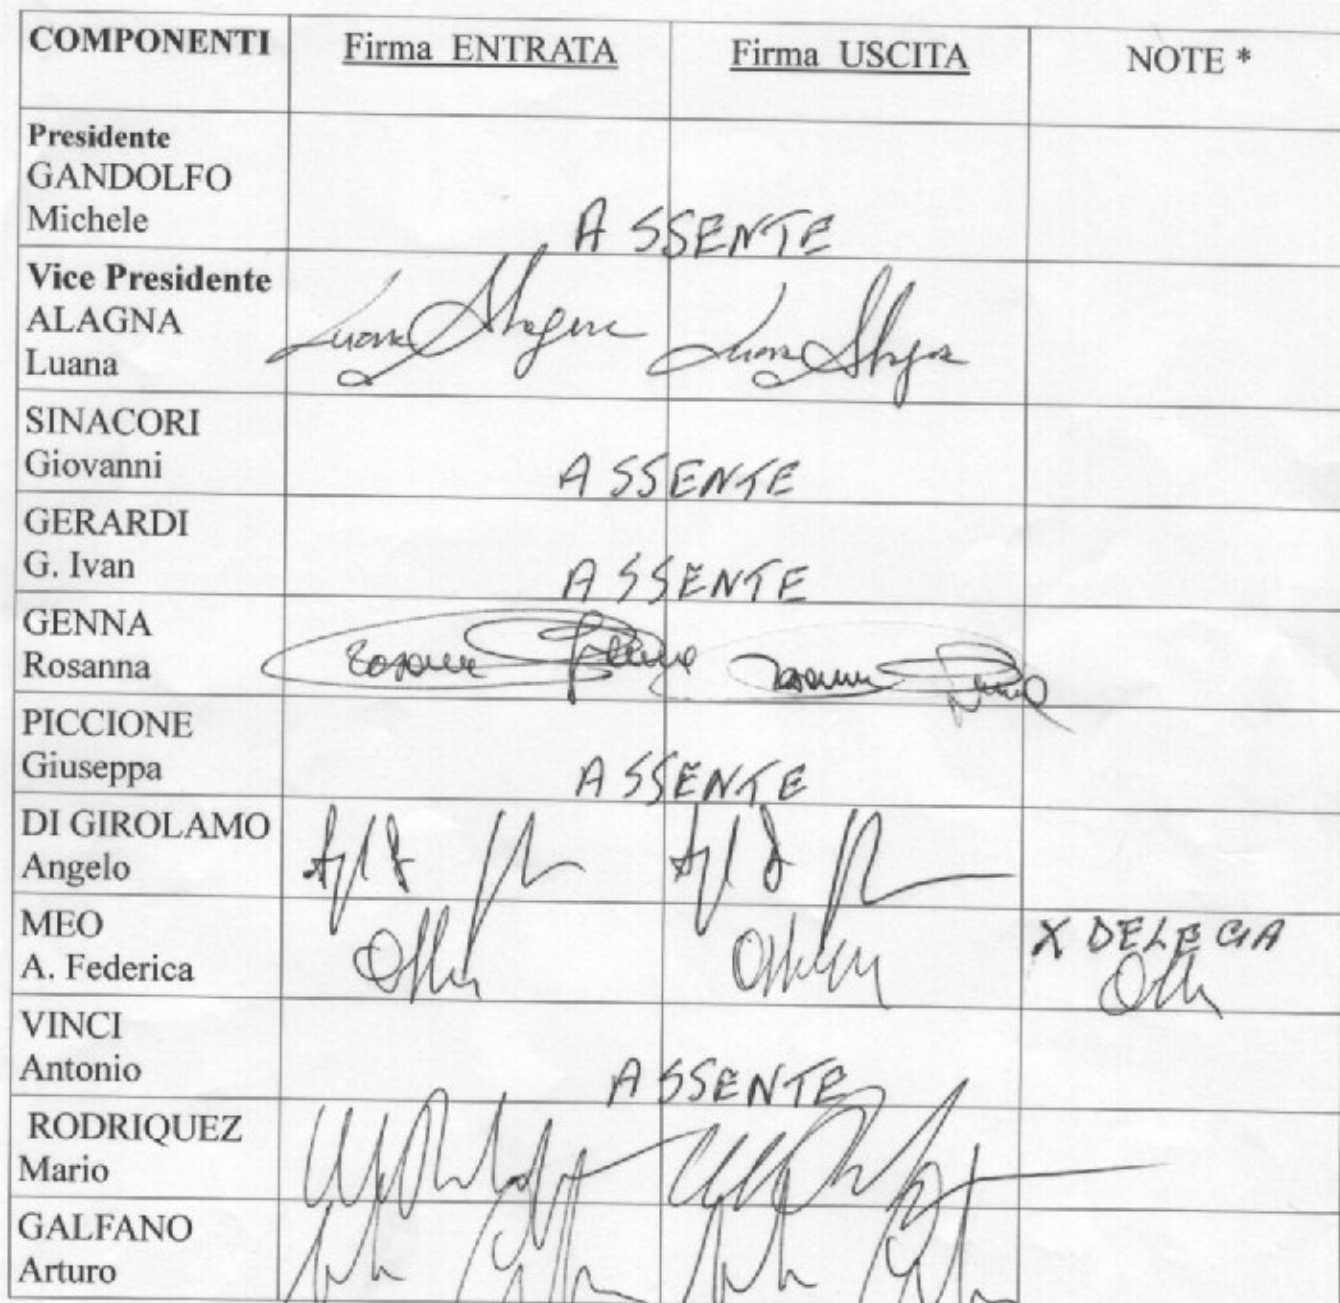 COMPONENTI Firma ENTRATA Firma USCITA NOTE *
Presidente
GANDOLFO
Michele
ASSENTE
Vice Presidente
ALAGNA
Luana
Luana Alagna Luana Alagna
SINACORI
Giovanni
ASSENTE
GERARDI
G. Ivan
ASSENTE
GENNA
Rosanna
Rosanna Genna Rosanna Genna
PICCIONE
Giuseppa
ASSENTE
DI GIROLAMO
Angelo
MEO
A. Federica
X DELEGA
VINCI
Antonio
ASSENTE
RODRIQUEZ
Mario
GALFANO
Arturo